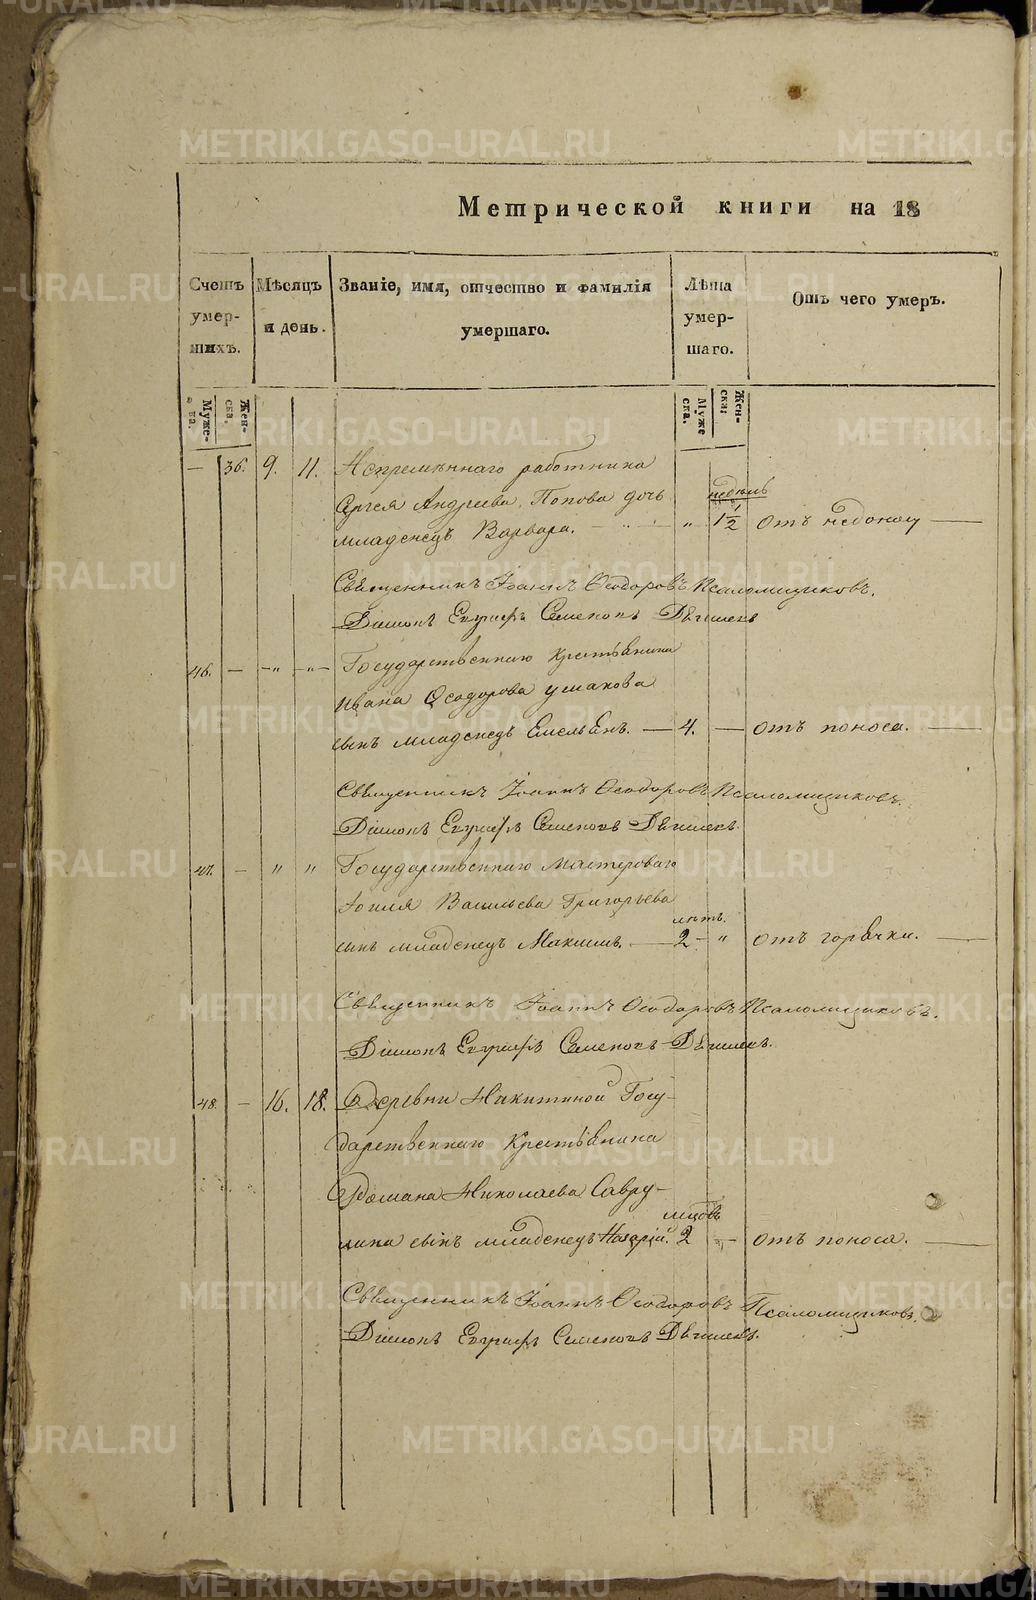 Метрической книги на 18
Счетъ умер-шихъ.
Мѣсяцъ и день.
Званіе, имя, отчество и фамилія умершаго.
Лѣта умер-шаго.
Отъ чего умеръ.
Муже-ска.
Жен-ска.
Муже ска.
Жен-ска.
— 36. 9. 11. Непремѣннаго работника
Сергея Андреева Попова дочь недѣль
младенецъ Варвара. — „ 1½ отъ недоносу —
Священникъ Іоаннъ Ѳеодоровъ Псаломщиковъ.
Діаконъ Евграфъ Семеновъ
46. — — „ — „ — Государственнаго крестьянина
Ивана Ѳеодорова Ушакова
сынъ младенецъ Емельянъ. — 4. — отъ поноса. —
Священникъ Іоаннъ Ѳеодоровъ Псаломщиковъ.
Діаконъ Евграфъ Семеновъ
47. — „ „ Государственнаго мастероваго
Васильева Григорьева
лѣтъ.
сынъ младенецъ Максимъ. — 2 — „ отъ горячки. —
Священникъ Іоаннъ Ѳеодоровъ Псаломщиковъ.
Діаконъ Евграфъ Семеновъ
48. — 16. 18. Деревни Никитиной Госу-
дарственнаго крестьянина
Романа Николаева Савру-
лина сынъ младенецъ Назарій. 2 — отъ поноса. —
Священникъ Іоаннъ Ѳеодоровъ Псаломщиковъ.
Діаконъ Евграфъ Семеновъ
METRIKI.GASO-URAL.RU